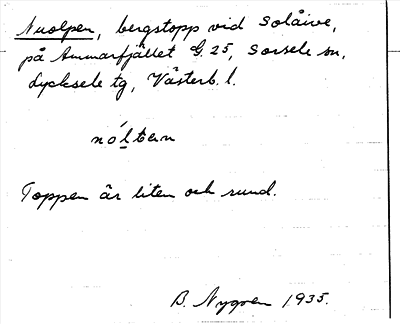 Nuolpen, bergstopp vid Solåive,
på Ammarfjället G. 25, Sorsele sn,
Lycksele tg, Västerb. l.
nó̱ltɐn
Toppen är liten och rund.
B. Nygren 1935.